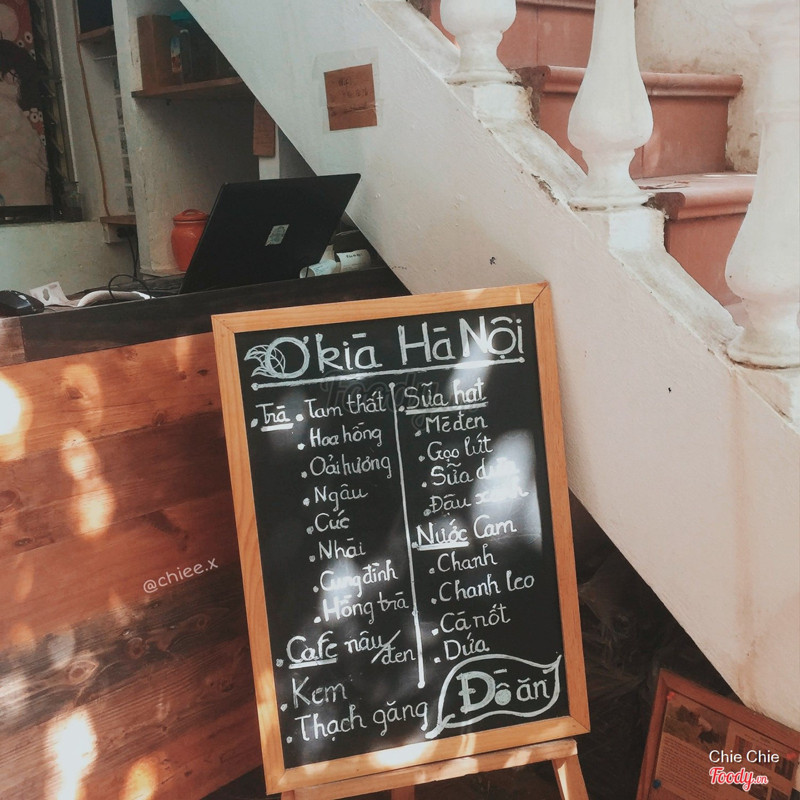 Ơ'kìa Hà Nội
Trà
Tam thất
Hoa hồng
Oải hương
Ngâu
Cúc
Nhài
Cung đình
Hồng trà
Cafe nâu/đen
Kem
Thạch găng
Sữa hạt
Mè đen
Gạo lứt
Sữa dừa
Đậu xanh
Nước Cam
Chanh
Chanh leo
Cà nốt
Dứa
Đồ ăn
@chiee.x
Chie Chie
Foody.vn